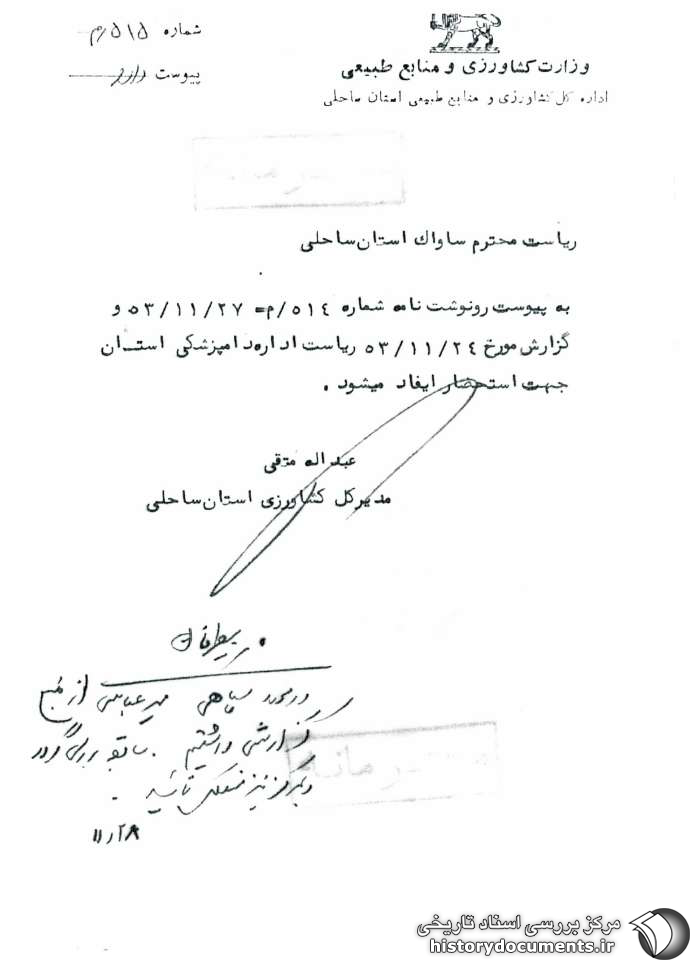 شماره ۵۱۵/م
پیوست دارد
وزارت کشاورزی و منابع طبیعی
اداره کل کشاورزی و منابع طبیعی استان ساحلی
محرمانه
ریاست محترم ساواك استان ساحلی
به پیوست رونوشت نامه شماره ٥١٤/م= ٥٣/١١/٢٧ و
گزارش مورخ ٥٣/١١/٢٤ ریاست اداره دامپزشکی استان
جهت استحضار ایفاد میشود .
عبداله متقی
مدیرکل کشاورزی استان ساحلی
در مورد سپاهی میرعباسی از
گزارشی داشتیم . سابقه بررسی گردد
نیز منعکس نمائید .
۱۱/۲۸
محرمانه
مرکز بررسی اسناد تاریخی
historydocuments.ir